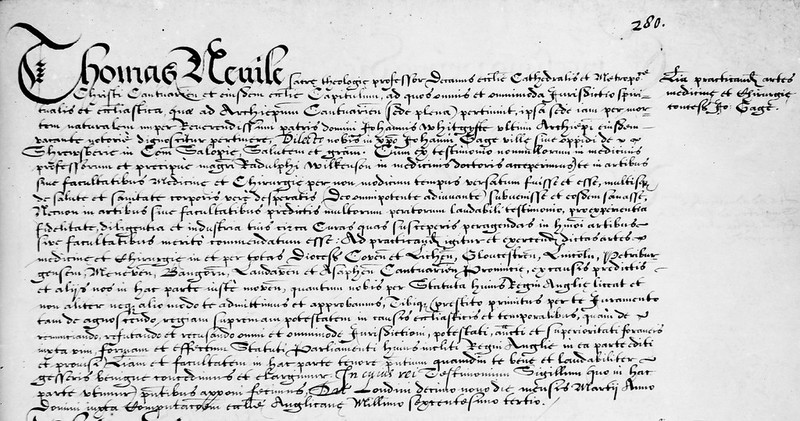 280.
Thomas Nevile sacre theologie professor Decanus ecclie Cathedralis et Metropo^ce
Christi Cantuarien et eiusdem ecclie Capitulum, ad quos omnis et omnimoda Iurisdictio spiri=
tualis et eccliastica, que ad Archiepum Cantuarien (sede plena) pertinuit, ipsa sede iam per mor=
tem naturalem nuper Reverendissimi patris domini Johannis Whitgyfte ultimi Archiepi eiusdem
vacante notorie dignoscitur pertinere, Dilecto nobis in Xpo Johanni Gage ville sive oppidi de
Shrewsberie in Com Salopie, Salutem et gram: Cum ex testimonio nonnullorum in medicinis
professorum et precipue magri Radulphi Wilkenson in medicinis doctoris acceperimus te in artibus
sive facultatibus Medicine et Chirurgie per non modicum tempus versatum fuisse et esse, multisq
de salute et sanitate corporis vere desperatis Deo omnipotente adiuvante subvenisse et eosdem sanasse,
Necnon in artibus sive facultatibus predictis multorum peritorum laudabili testimonio, pro experientia
fidelitate, diligentia et industria tuis circa Curas quas susceperis peragendas in hmoi artibus
sive facultatibus merito commendatum esse: Ad practicand igitur et exercend dictas artes
medicine et Chirurgie in et per totas Dioceses Coven et Lichen, Gloucestren, Lincoln, Petribur
gensem, Meneven, Bangoren, Landaven et Asaphen Cantuarien Provincie, ex causis predictis
et alijs nos in hac parte iuste moven, quantum nobis per Statuta huius Regni Anglie liceat et
non aliter neq alio modo te admittimus et approbamus, Tibiq (prestito primitus per te Iuramento
tam de agnoscendo regiam supremam potestatem in causis ecclesiasticis et temporalibus, quam de
renunciando, refutando et recusando omni et omnimode Iurisdictioni, potestati, aucti et superioritati foraneis
iuxta vim, formam et effectum Statuti Parliamenti huius incliti Regni Anglie in ea parte editi
et provisi) Lian et facultatem in hac parte tenore pntium quamdiu te bene et laudabiliter
gesseris benigne concedimus et elargimur. In cuius rei Testimonium Sigillum quo in hac
parte utimur pntibus apponi fecimus, Dat Londini decimo nono die mensis Martij Anno
Domini iuxta Computaconem ecclie Anglicane Millimo Sexcentesimo tertio.
Lia practicandi artes
medicine et Chirurgie
concess Jo: Gage.